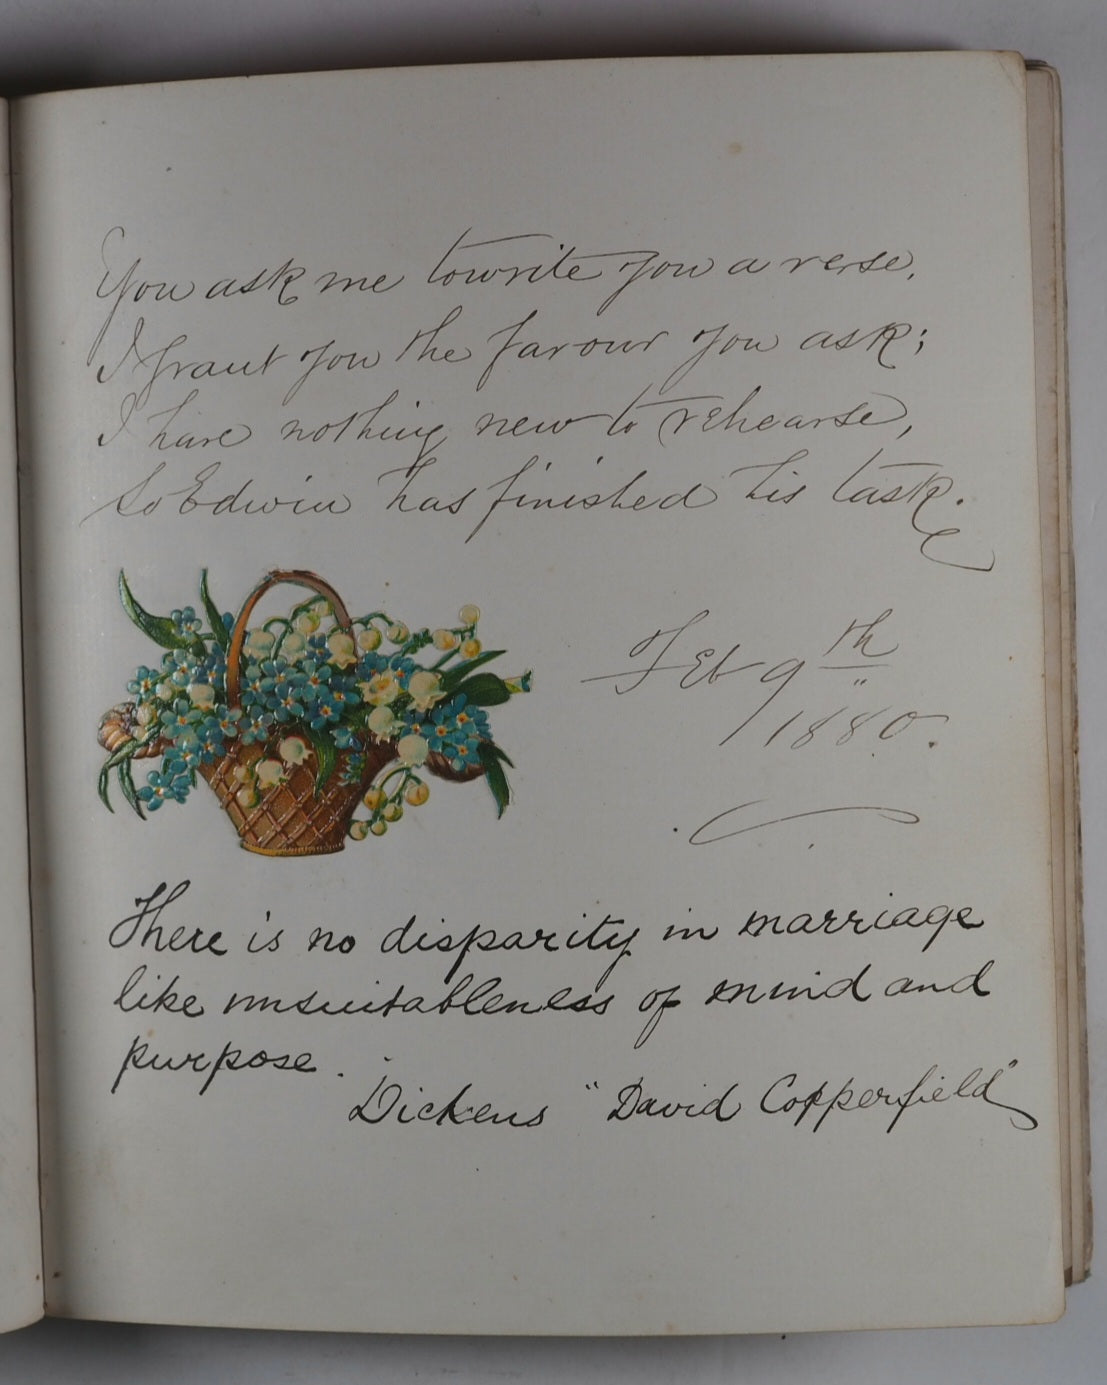 You ask me to write you a verse,
I grant you the favour you ask;
I have nothing new to rehearse,
So Edwin has finished his task.
Feb 9th
1880.
There is no disparity in marriage
like unsuitableness of mind and
purpose.
Dickens "David Copperfield"